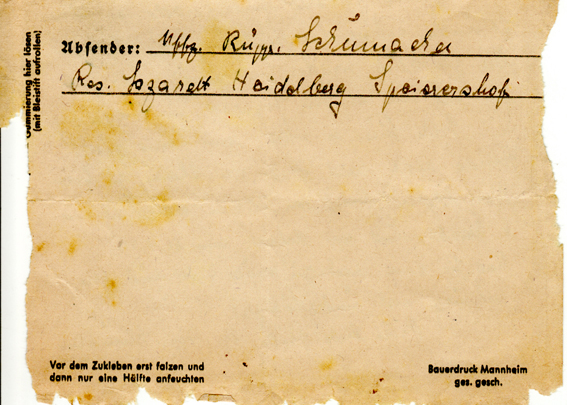 Gummierung hier lösen
(mit Bleistift aufrollen)
Absender: Uffz. Rupp. Schumacher
Res. Lazarett Heidelberg Speierershof
Vor dem Zukleben erst falzen und
dann nur eine Hälfte anfeuchten
Bauerdruck Mannheim
ges. gesch.